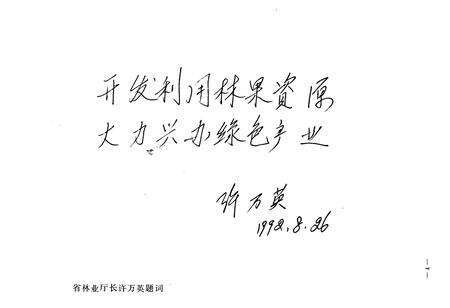 开发利用林果资源
大力兴办绿色产业
许万英
1992.8.26
省林业厅长许万英题词